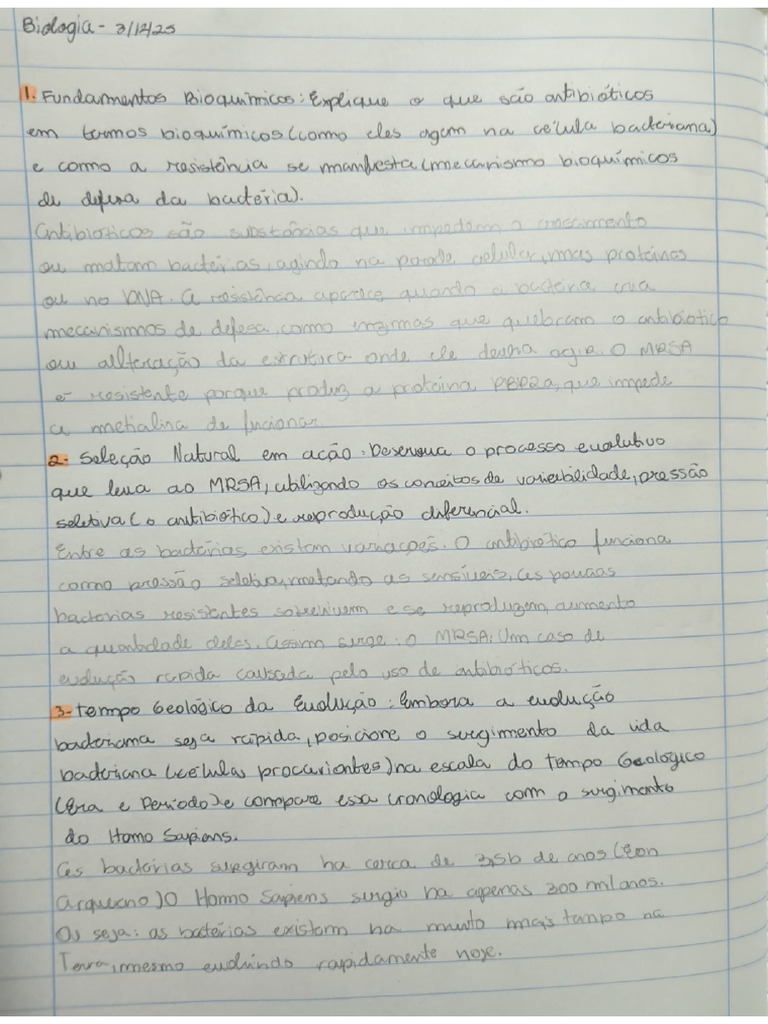 Biologia - 3/12/25
1. Fundamentos Bioquímicos: Explique o que são antibióticos
em termos bioquímicos (como eles agem na célula bacteriana)
e como a resistência se manifesta (mecanismo bioquímicos
de defesa da bactéria).
Antibioticos são substâncias que impedem o crescimento
ou matam bactérias, agindo na parede celular, nas proteínas
ou no DNA. A resistência aparece quando a bactéria cria
mecanismos de defesa, como enzimas que quebram o antibiotico
ou alteração da estrutura onde ele devia agir. O MRSA
é resistente porque produz a proteina PBP2a, que impede
a meticilina de funcionar.
2. Seleção Natural em ação: Descreva o processo evolutivo
que leva ao MRSA, utilizando os conceitos de variabilidade, pressão
seletiva (o antibiótico) e reprodução diferencial.
Entre as bactérias existem variações. O antibiotico funciona
como pressão seletiva, matando as sensíveis, as poucas
bacterias resistentes sobrevivem e se reproduzem, aumento
a quantidade deles. Assim surge: o MRSA: Um caso de
evolução rapida causada pelo uso de antibióticos.
3- Tempo Geológico da Evolução: Embora a evolução
bacteriana seja rápida, posicione o surgimento da vida
bacteriana (células procariontes) na escala do Tempo Geológico
(Era e Período) e compare essa cronologia com o surgimento
do Homo Sapiens.
As bactérias surgiram ha cerca de 3,5b de anos (Éon
Arqueano) O Homo Sapiens surgio ha apenas 300 mil anos.
Ou seja: as bactérias existem ha muito mais tempo na
Terra, mesmo evoluindo rapidamente hoje.